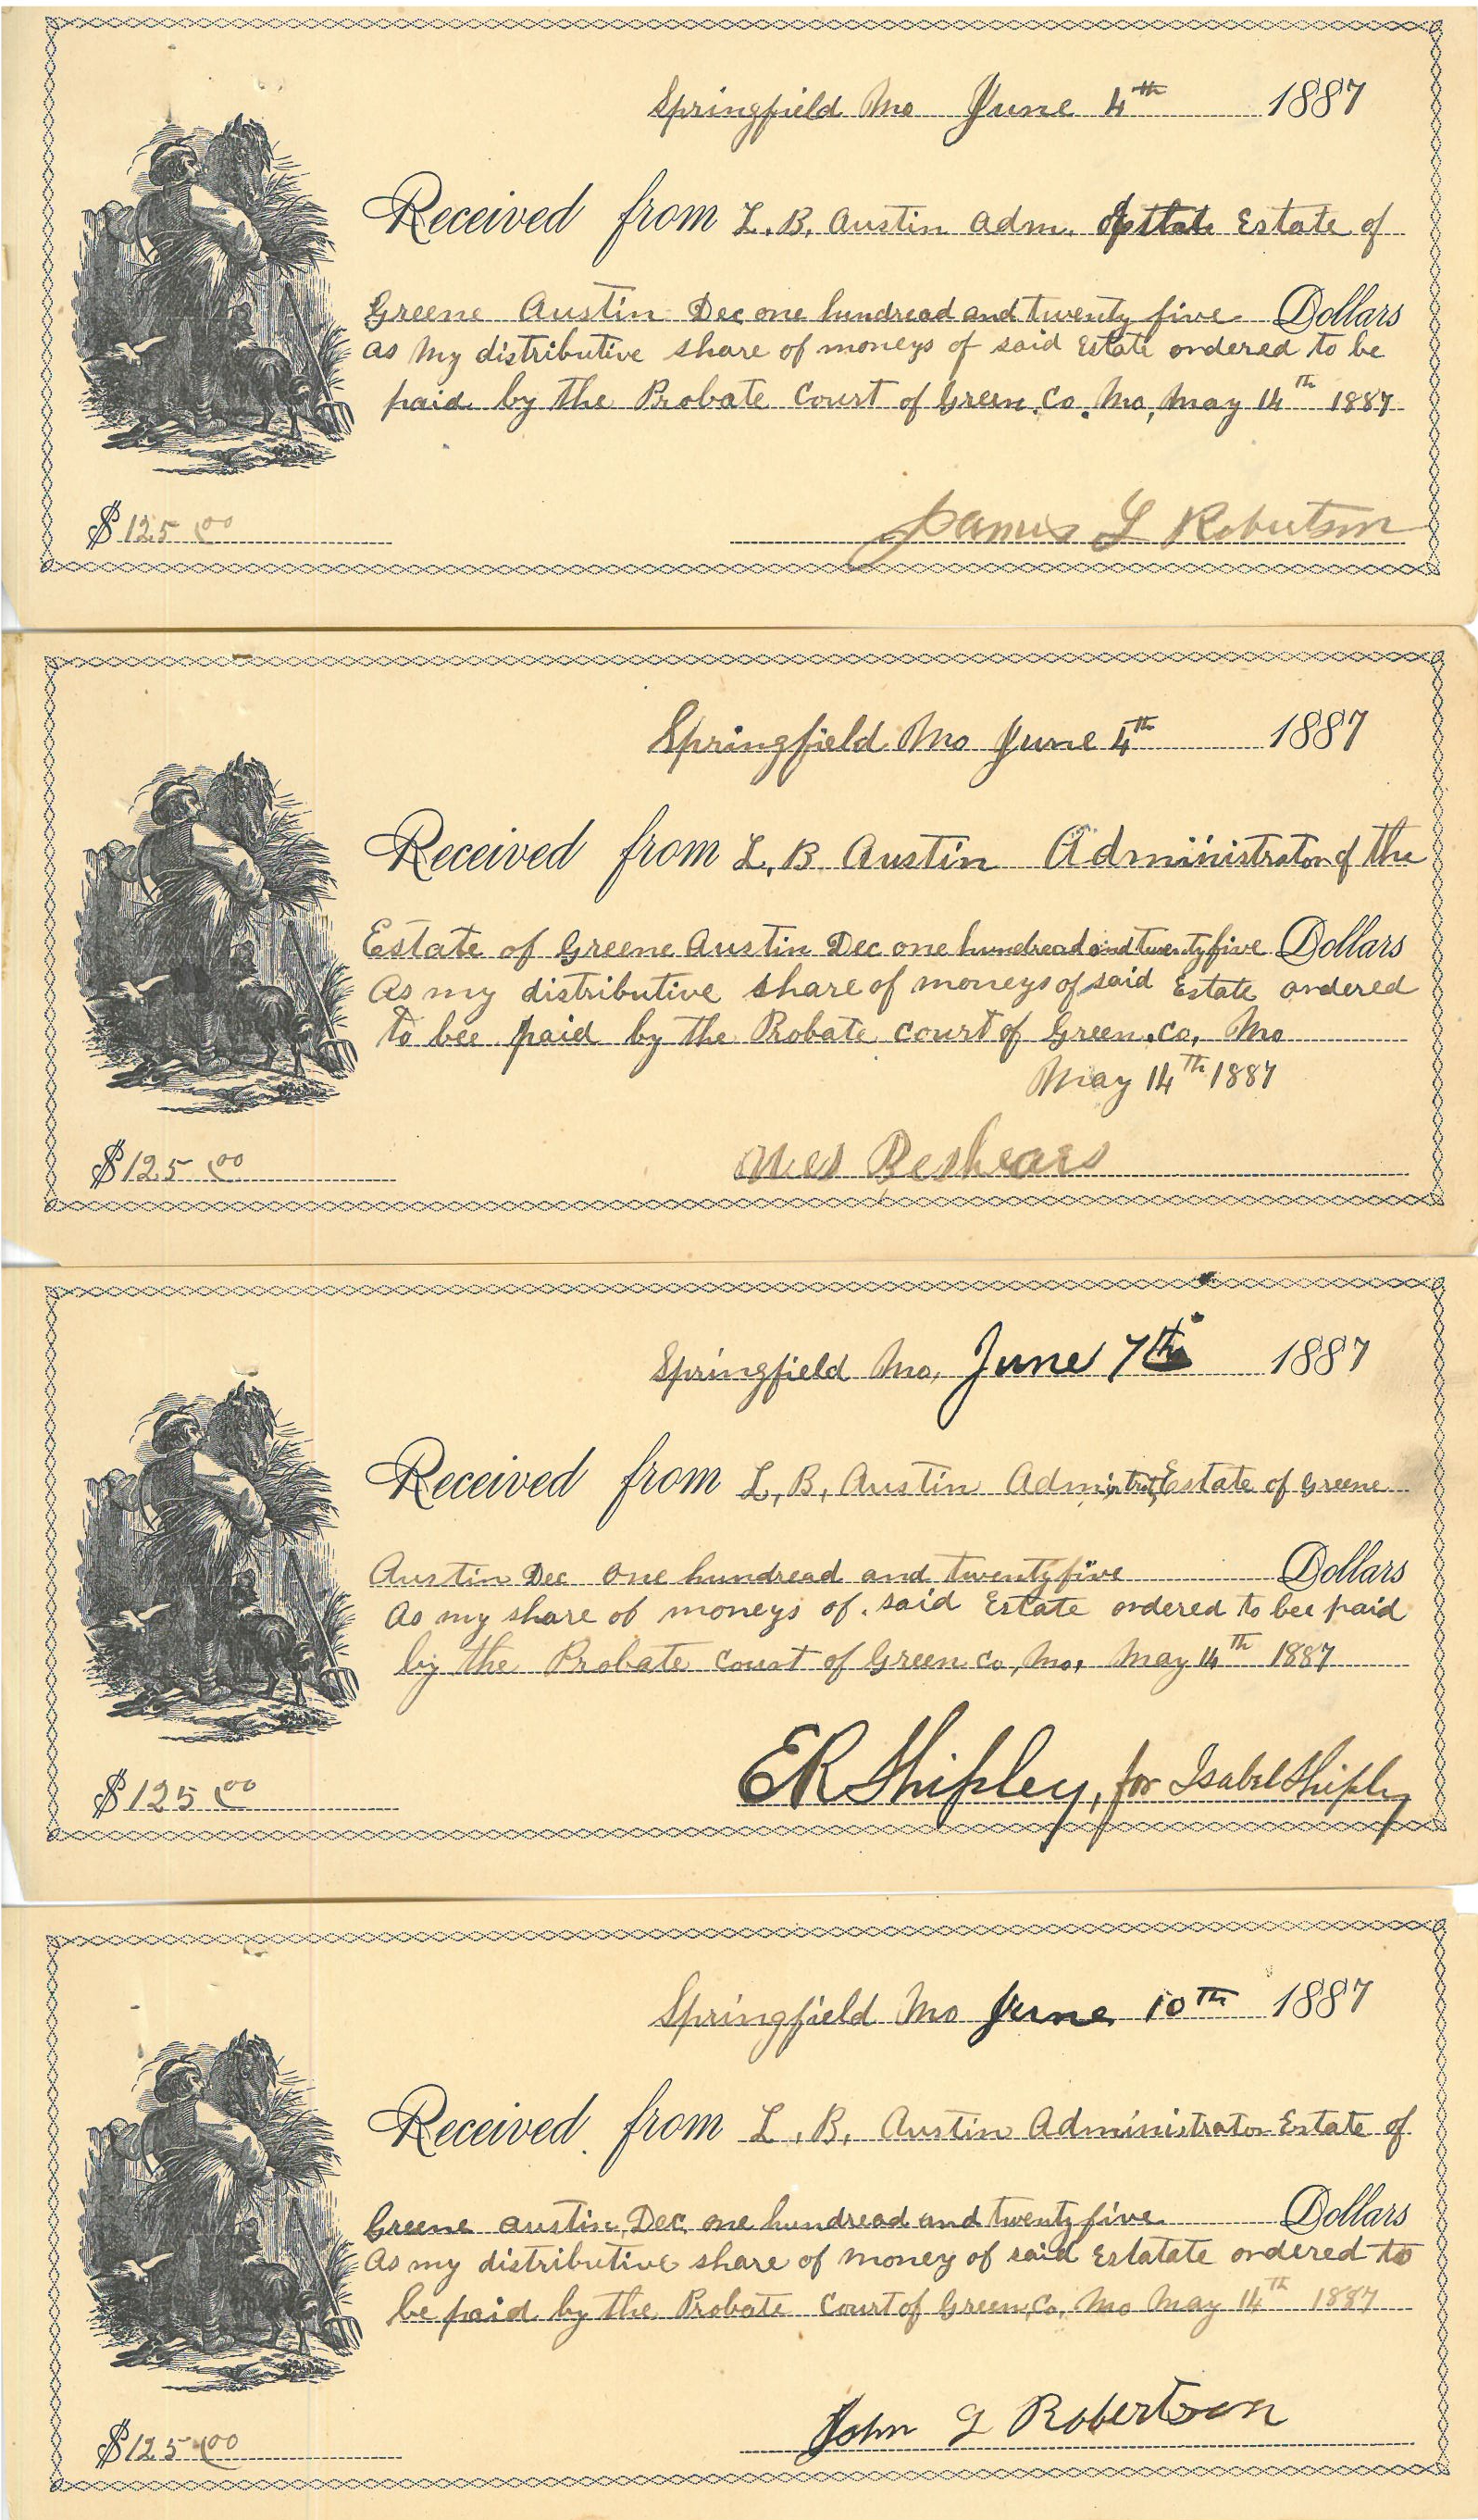 Springfield Mo June 4th 1887
Received from L. B. Austin Adm. Estate of
Greene Austin Dec one hundread and twenty five Dollars
as my distributive share of moneys of said Estate ordered to be
paid by the Probate Court of Green. Co. Mo, May 14th 1887
$125.00
James L Robertson
Springfield Mo June 4th 1887
Received from L. B. Austin Administrator of the
Estate of Greene Austin Dec one hundread and twenty five Dollars
As my distributive share of moneys of said Estate ordered
to bee paid by the Probate court of Green. Co. Mo
May 14th 1887
$125.00
Beshears
Springfield Mo, June 7th 1887
Received from L, B, Austin Estate of Greene
Austin Dec one hundread and twenty five Dollars
As my share of moneys of said Estate ordered to bee paid
by the Probate Court of Green Co, Mo, May 14th 1887
$125.00
ER Shipley, for Isabel Shipley
Springfield Mo June 10th 1887
Received from L. B. Austin Administrator Estate of
Greene Austin Dec one hundread and twenty five Dollars
As my distributive share of money of said Estatate ordered to
be paid by the Probate Court of Green, Co, Mo May 14th 1887
$125.00
John G Robertson